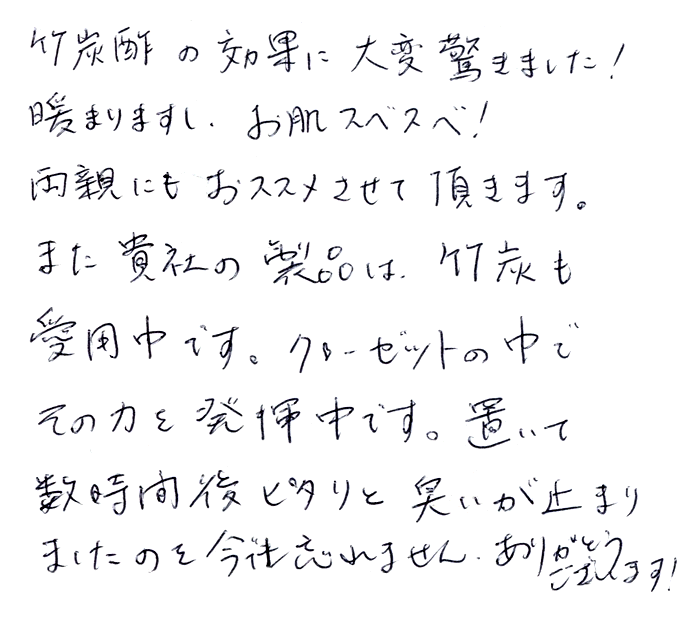 竹炭酢の効果に大変驚きました!
暖まりますし、お肌スベスベ!
両親にもおススメさせて頂きます。
また貴社の製品は、竹炭も
愛用中です。クローゼットの中で
その力を発揮中です。置いて
数時間後ピタリと臭いが止まり
ましたのを今でも忘れません。ありがとう
ございます!